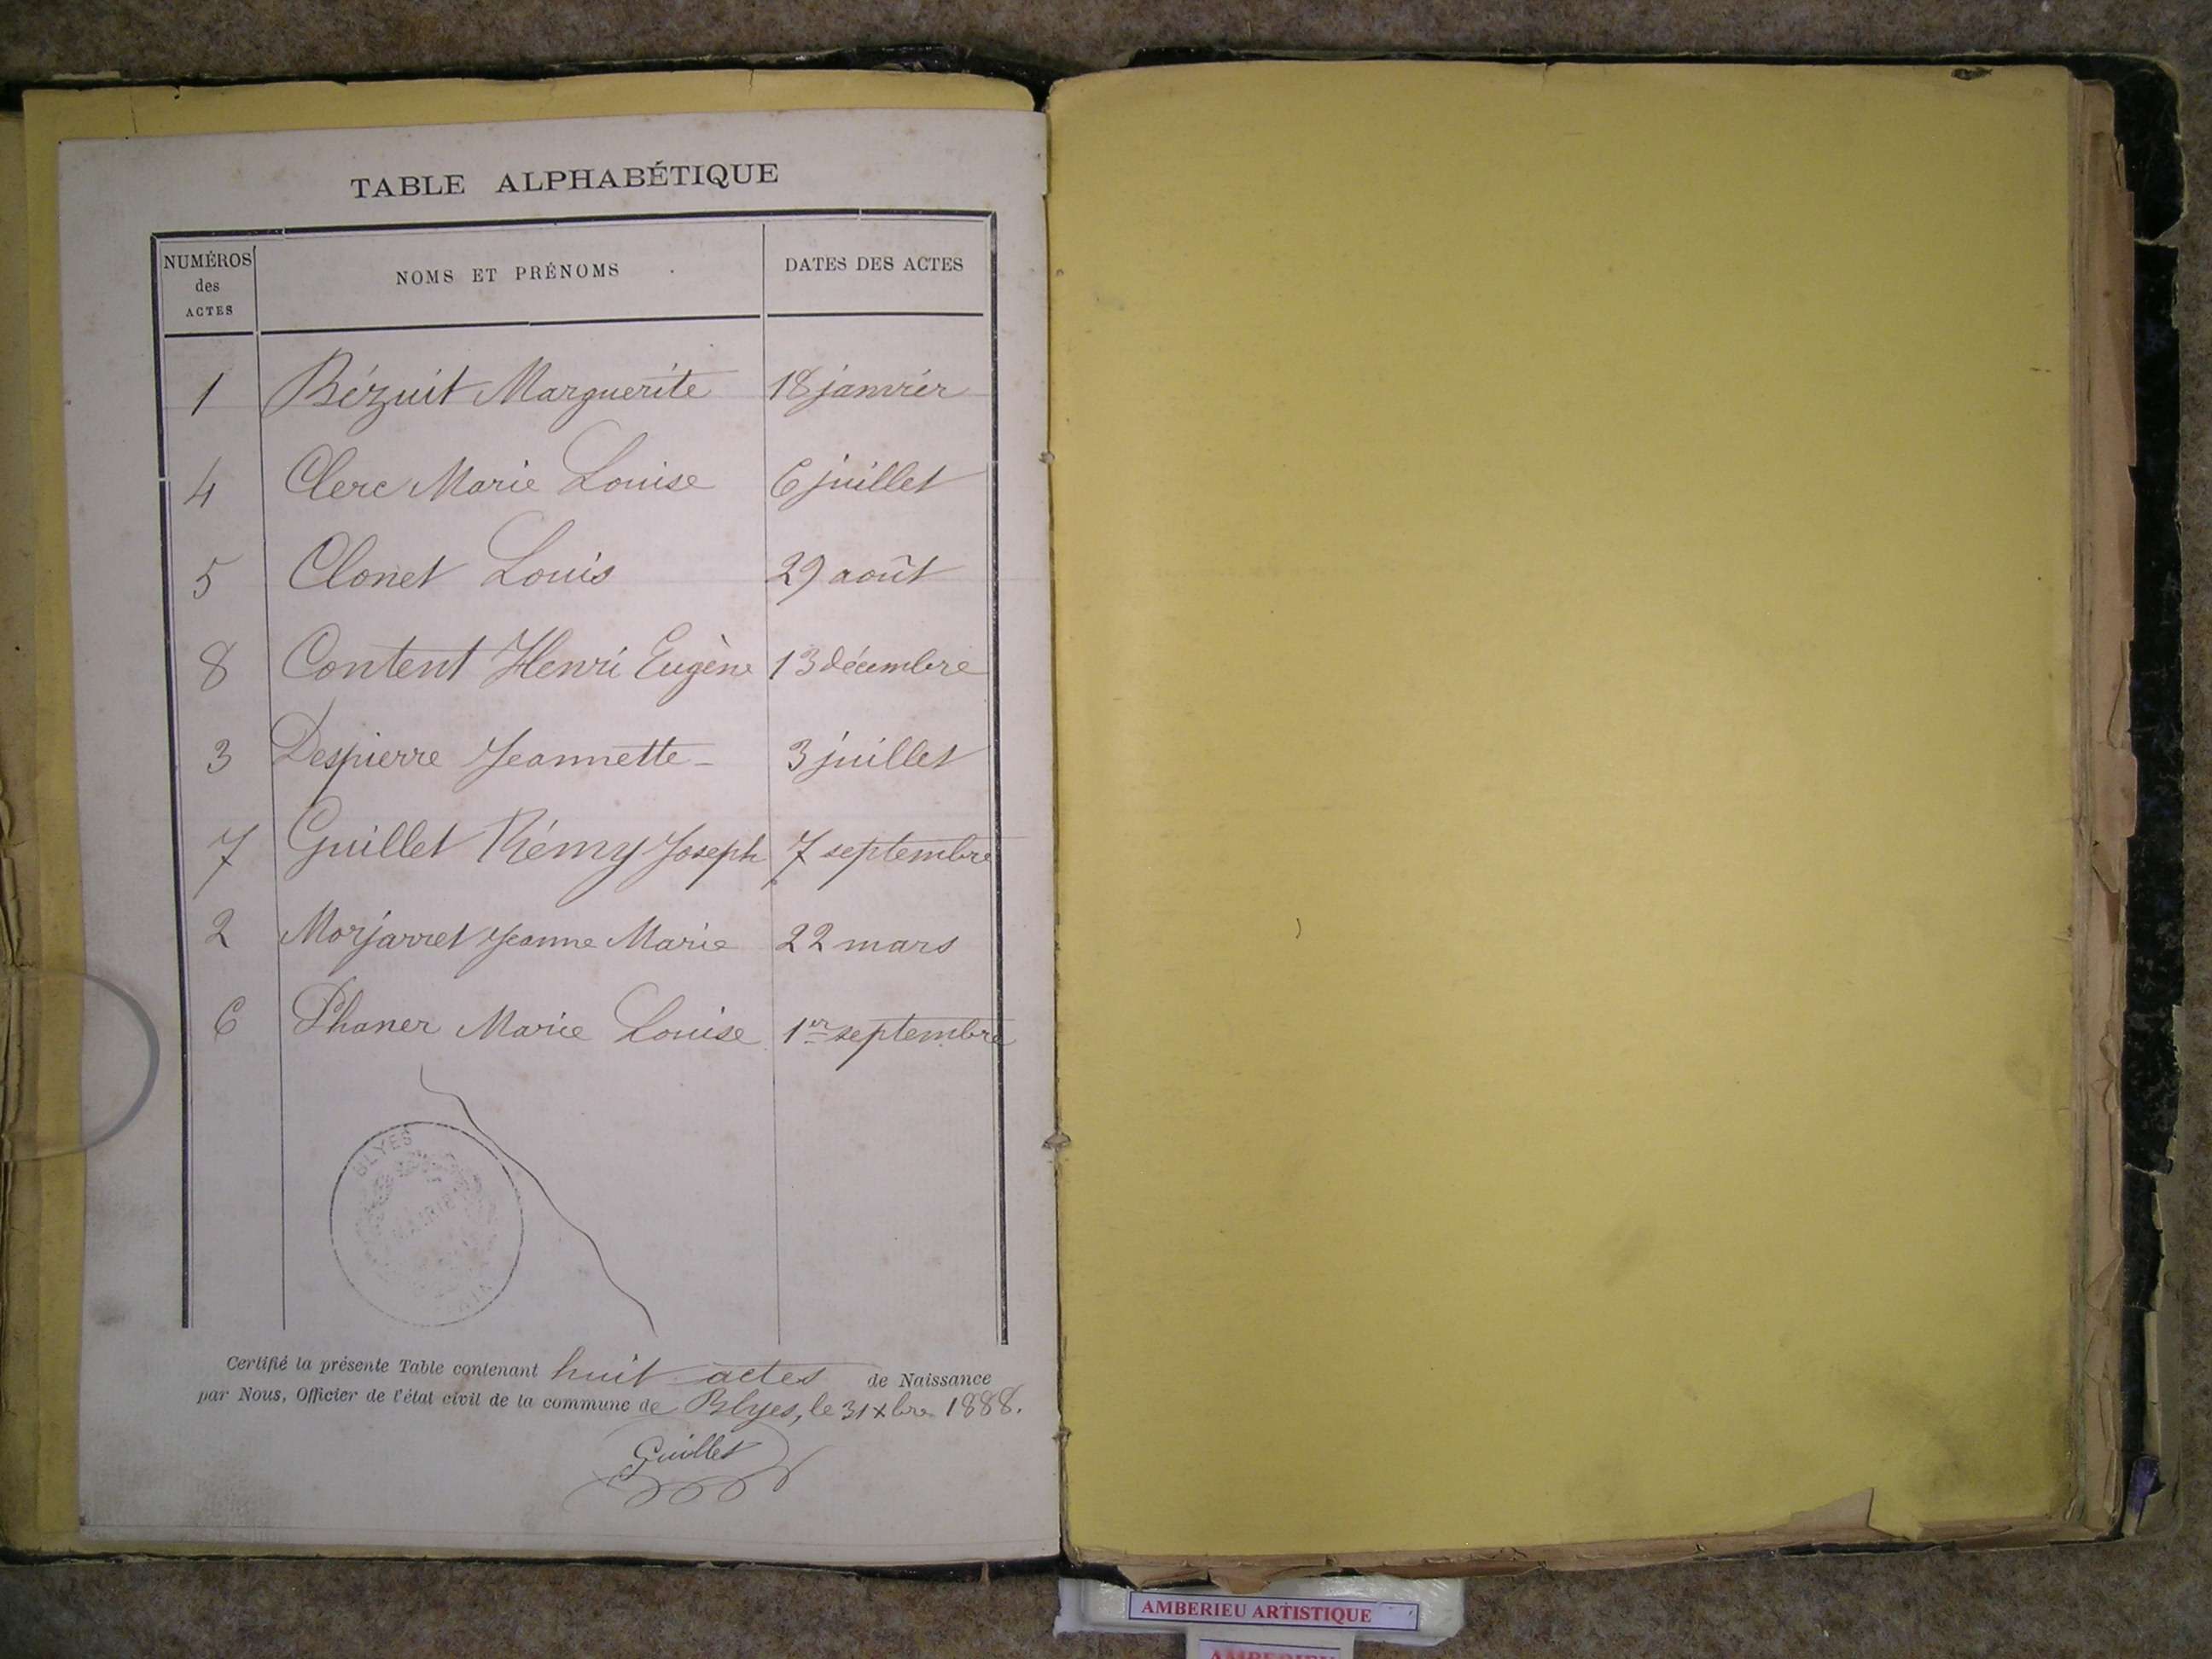 TABLE ALPHABÉTIQUE
NUMÉROS des ACTES NOMS ET PRÉNOMS DATES DES ACTES
1 Bézuit Marguerite 18 janvier
4 Clerc Marie Louise 6 juillet
5 Clonet Louis 29 août
8 Content Henri Eugène 13 décembre
3 Despierre Jeannette 3 juillet
7 Guillet Rémy Joseph 7 septembre
2 Morjarret Jeanne Marie 22 mars
6 Phaner Marie Louise 1er septembre
BLYES
MAIRIE
AIN
Certifié la présente Table contenant huit actes de Naissance
par Nous, Officier de l'état civil de la commune de Blyes, le 31 xbre 1888.
Guillet
AMBERIEU ARTISTIQUE
AMBERIEU